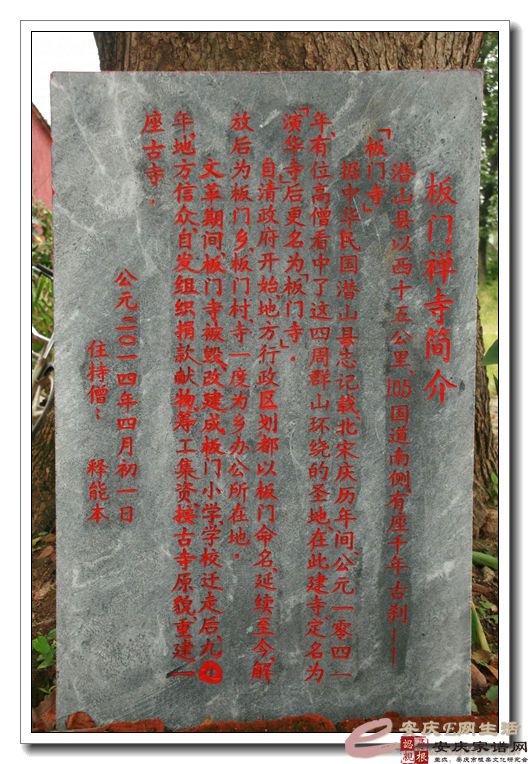 板门禅寺简介
潜山县以西十五公里、105国道南侧,有座千年古刹——
「板门寺」
据中华民国潜山县志记载,北宋庆历年间,公元一零四一
年,有位高僧看中了这四周群山环绕的圣地,在此建寺,定名为
「演华寺」后更名为「板门寺」。
自清政府开始,地方行政区划都以板门命名,延续至今,解
放后为板门乡、板门村寺一度为乡办公所在地。
文革期间板门寺被毁,改建成板门小学,学校迁走后,九八
年,地方信众,自发组织捐款献物,筹工集资,按古寺原貌重建一
座古寺。
公元二〇一四年四月初一日
住持僧: 释能本
安庆E网生活
安庆家谱网